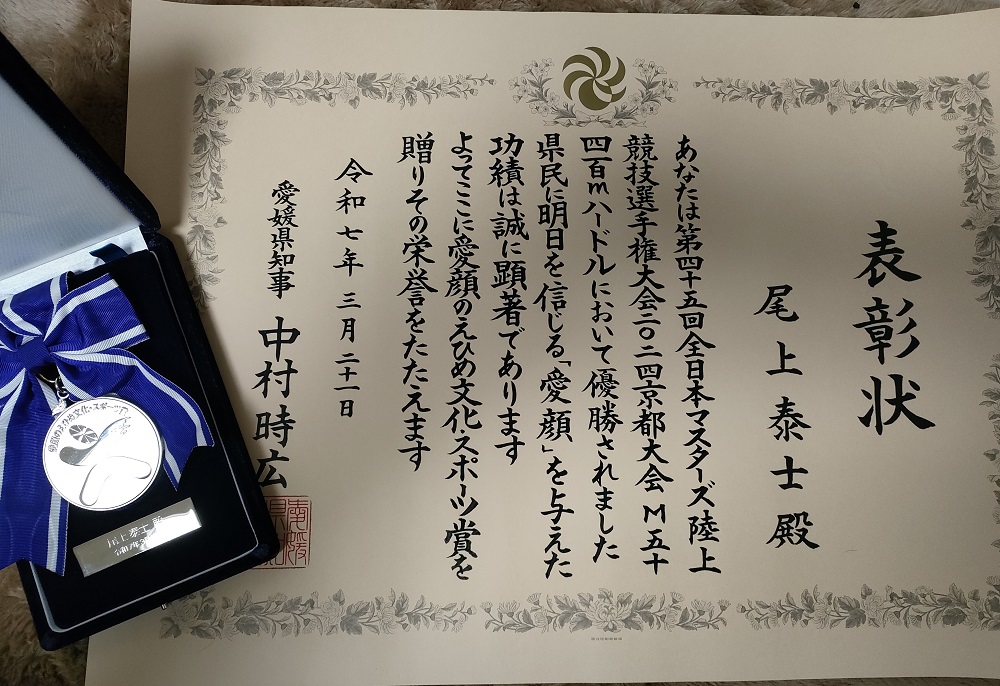 表彰状
尾上泰士殿
あなたは第四十五回全日本マスターズ陸上
競技選手権大会二〇二四京都大会M五十
四百mハードルにおいて優勝されました
県民に明日を信じる「愛顔」を与えた
功績は誠に顕著であります
よってここに愛顔のえひめ文化スポーツ賞を
贈りその栄誉をたたえます
令和七年三月二十一日
愛媛県知事 中村時広
愛顔のえひめ文化・スポーツ賞
尾上泰士 殿
令和7年3月